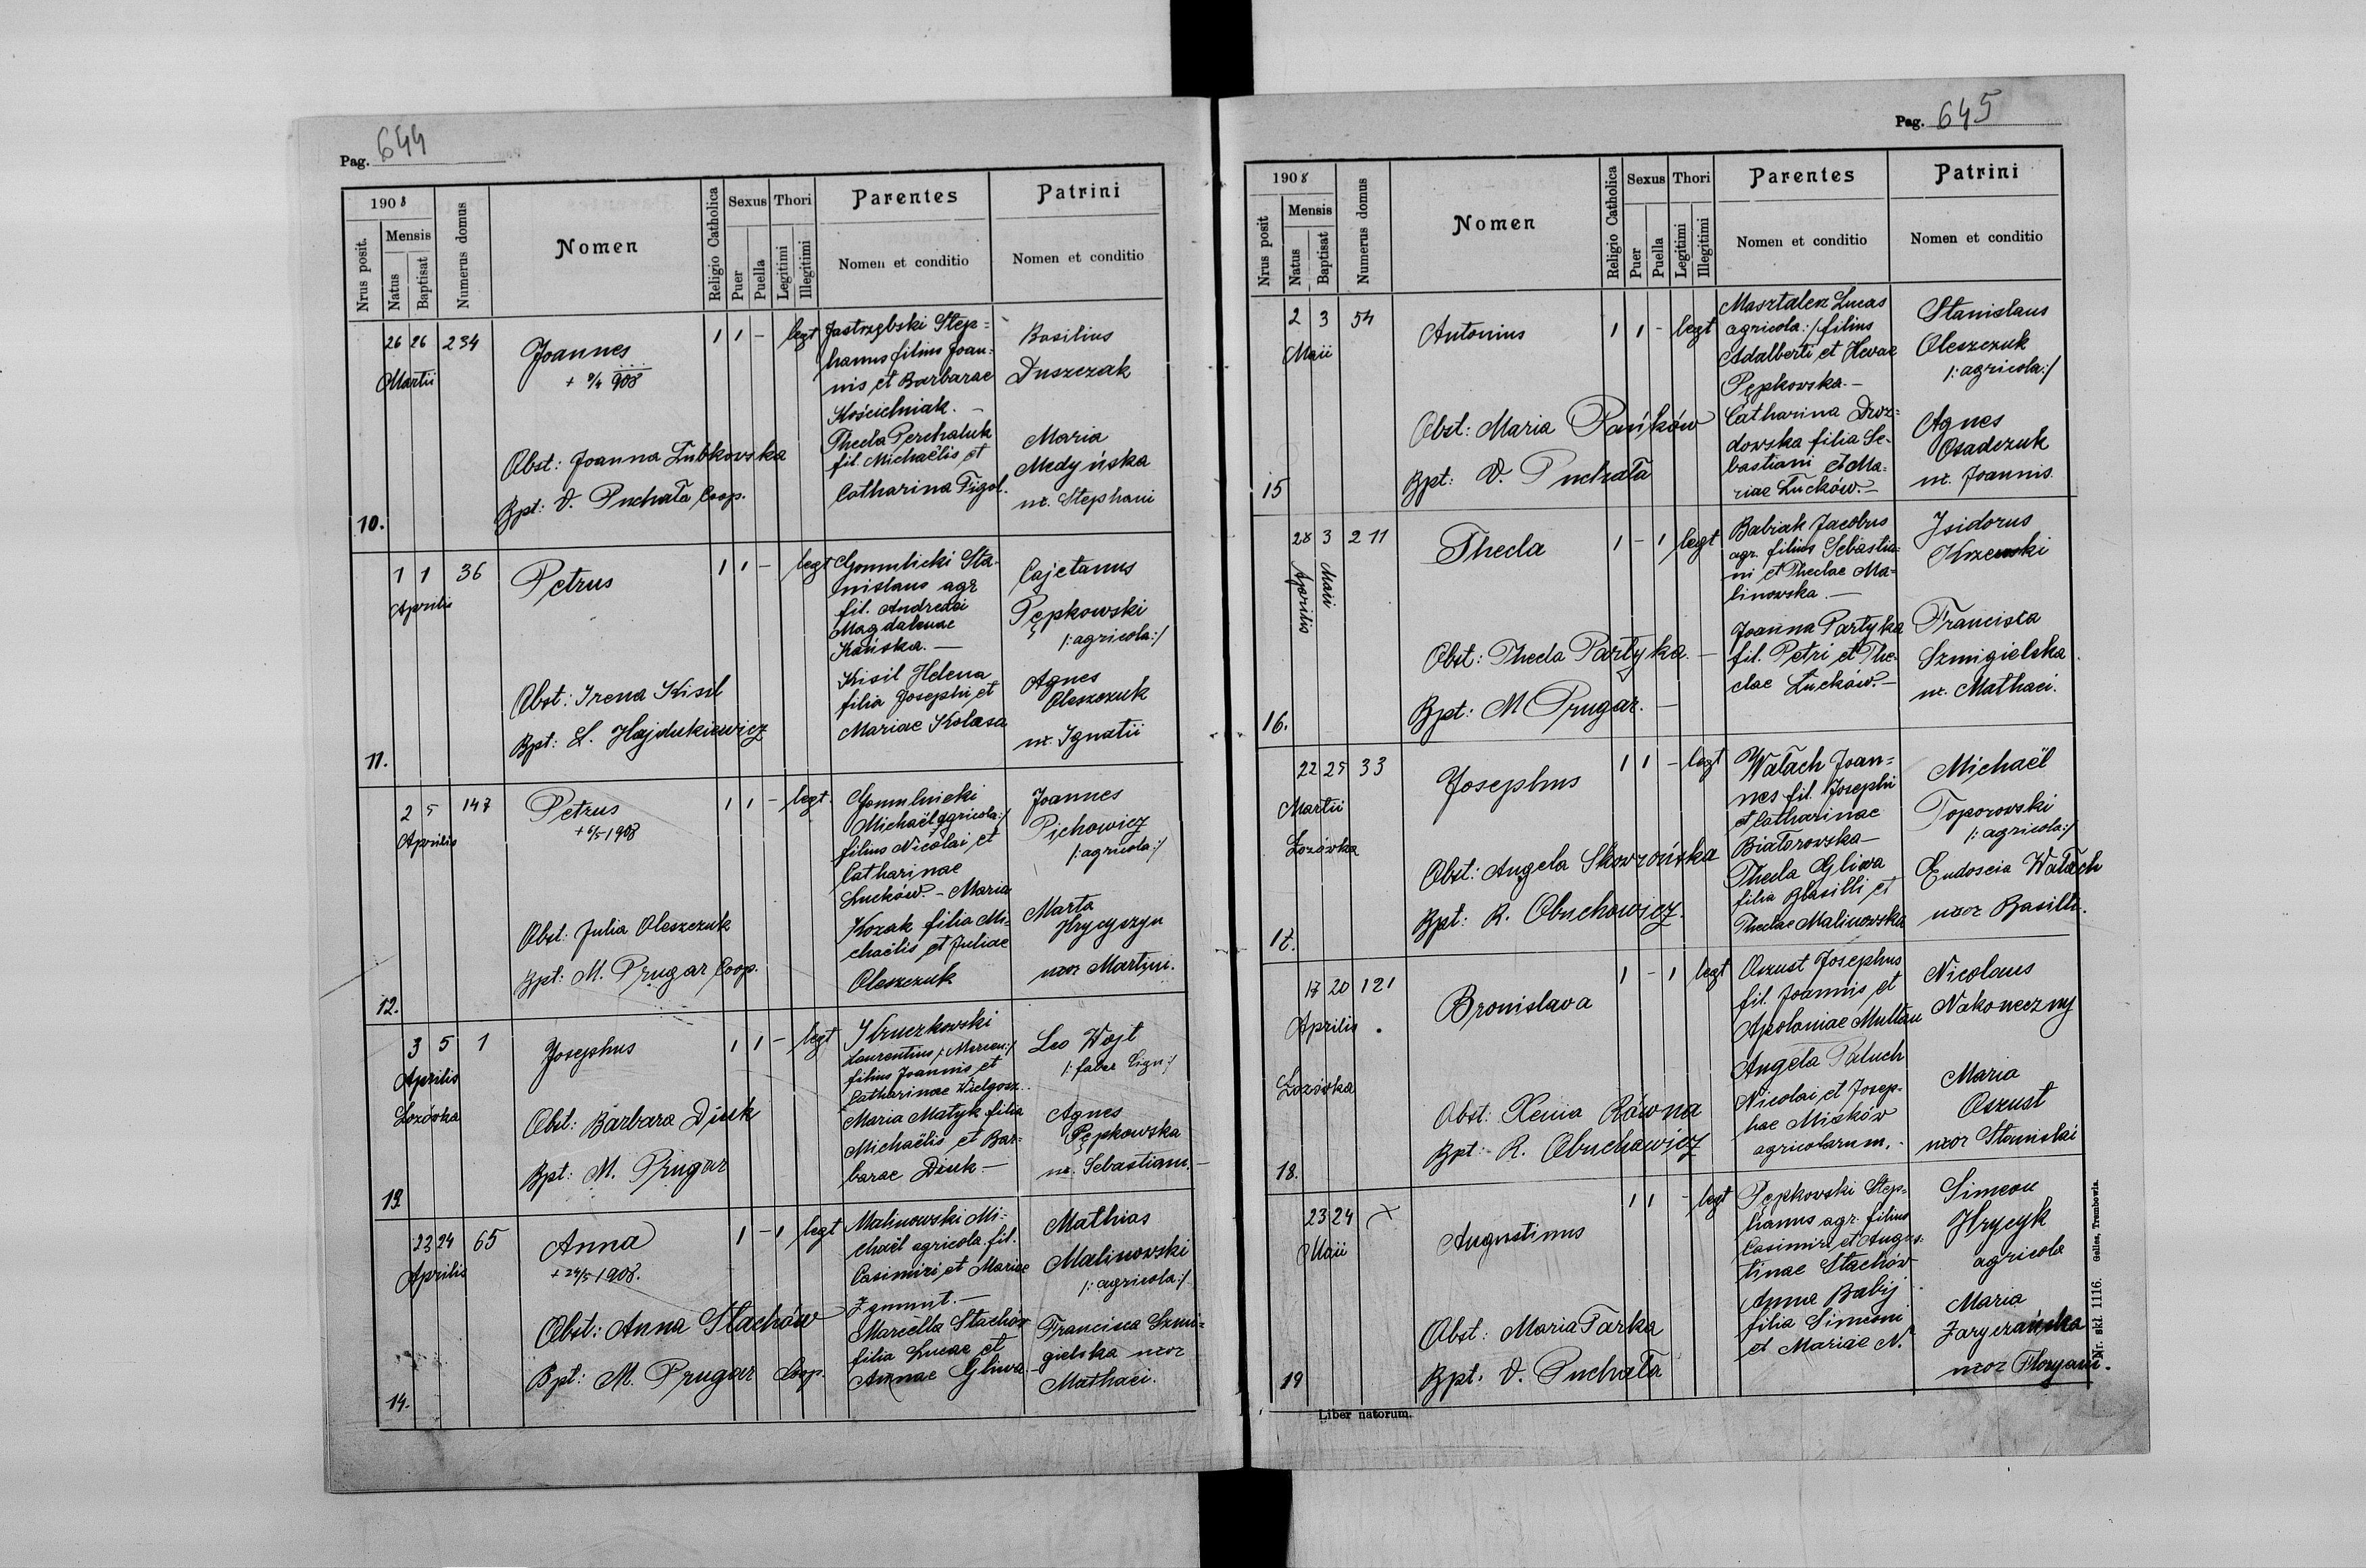 Pag. 644
1908
Nrus posit.
Mensis
Natus
Baptisat
Numerus domus
Nomen
Religio Catholica
Sexus
Puer
Puella
Thori
Legitimi
Illegitimi
Parentes
Nomen et conditio
Patrini
Nomen et conditio
10.
26 26 234
Martii
Joannes
+ 9/4 908
Obst: Joanna Łubkowska
Bpt: V. Puchała Coop.
1 1 - legt
Jastrzębski Step=
hanus filius Joan=
nis et Barbarae
Kościelniak. -
Thecla Perchaluk
fil. Michaëlis et
Catharina Figol.
Basilius
Duszczak
Maria
Medyńska
ux. Stephani
11.
1 1 36
Aprilis
Petrus
Obst: Irena Kisil
Bpt: L. Hajdukiewicz
1 1 - legt
Gomulicki Sta-
nislaus agr
fil. Andreae
Magdalenae
Kańska. -
Kisil Helena
filia Josephi et
Mariae Kolasa
Cajetanus
Pępkowski
/:agricola:/
Agnes
Oleszczuk
ux. Ignatii
12.
2 5 147
Aprilis
Petrus
+ 6/5 1908
Obst: Julia Oleszczuk
Bpt: M. Prugar Coop.
1 1 - legt.
Gomulnicki
Michaël agricola:/
filius Nicolai et
Catharinae
Łucków. - Maria
Kozak filia Mi-
chaëlis et Juliae
Oleszczuk
Joannes
Pichowicz
/:agricola:/
Marta
Hrycyszyn
uxor Martini.
13
3 5 1
Aprilis
Łozówka
Josephus
Obst: Barbara Diuk
Bpt: M. Prugar
1 1 - legt
Kruczkowski
Laurentius
filius Joannis et
Catharinae Wielgosz.
Maria Matyk filia
Michaëlis et Bar=
barae Diuk -
Leo Wojt
/:faber lign:/
Agnes
Pępkowska
ux. Sebastiani -
14.
23 24 65
Aprilis
Anna
+ 24/5 1908.
Obst: Anna Stachów
Bpt: M. Prugar Coop.
1 - 1 legt
Malinowski Mi=
chaël agricola fil.
Casimiri et Mariae
Zgmunt. -
Marcella Stachów
filia Lucae et
Annae Gliwa.
Mathias
Malinowski
/:agricola:/
Francisca Szmi=
gielska uxor
Mathaei.
Pag. 645
1908
Nrus posit
Mensis
Natus
Baptisat
Numerus domus
Nomen
Religio Catholica
Sexus
Puer
Puella
Thori
Legitimi
Illegitimi
Parentes
Nomen et conditio
Patrini
Nomen et conditio
15
2 3 54
Maii
Antonius
Obst: Maria Pańków
Bpt: V. Puchała
1 1 - legt
Masztalerz Lucas
agricola:/ filius
Adalberti et Hevae
Pępkowska. -
Catharina Droz=
dowska filia Se-
bastiani et Ma=
riae Łuckow. -
Stanislaus
Oleszczuk
/:agricola:/
Agnes
Osadczuk
ux. Joannis.
16.
28 3 211
Aprilis
Maii
Thecla
Obst: Thecla Partyka. -
Bpt: M Prugar. -
1 - 1 legt
Babiak Jacobus
agr. filius Sebastia=
ni et Theclae Ma=
linowska. -
Joanna Partyka
fil. Petri et The-
clae Łuckow. -
Isidorus
Krzewski
Francisca
Szmigielska
ux. Mathaei.
17.
22 25 33
Martii
Łozówka
Josephus
Obst: Angela Skowrońska
Bpt: R. Obuchowicz.
1 1 - legt
Wałach Joan=
nes fil. Josephi
et Catharinae
Białorowska -
Thecla Gliwa
filia Basilli et
Theclae Malinowska
Michaël
Toporowski
/:agricola:/
Eudoscia Wałach
uxor Basilii.
18.
17 20 121
Aprilis.
Łozówka
Bronislava
Obst: Xenia Równa
Bpt: R. Obuchowicz
1 - 1 legt
Oszust Josephus
fil. Joannis et
Apoloniae Multan
Angela Paluch
Nicolai et Josep-
hae Miśków
agricolarum.
Nicolaus
Nakoneczny
Maria
Oszust
uxor Stanislai
19
23 24
Maii
Augustinus
Obst: Maria Tarka
Bpt: V. Puchała
1 1 - legt
Pępkowski Step=
hanus agr. filius
Casimiri et Augus-
tinae Stachów
Anna Babij
filia Simeoni
et Mariae N.
Simeon
Hrycyk
agricola
Maria
Zaryczańska
uxor Floryani.
Liber natorum.
Nr. skł. 1116. Galles, Trembowla.